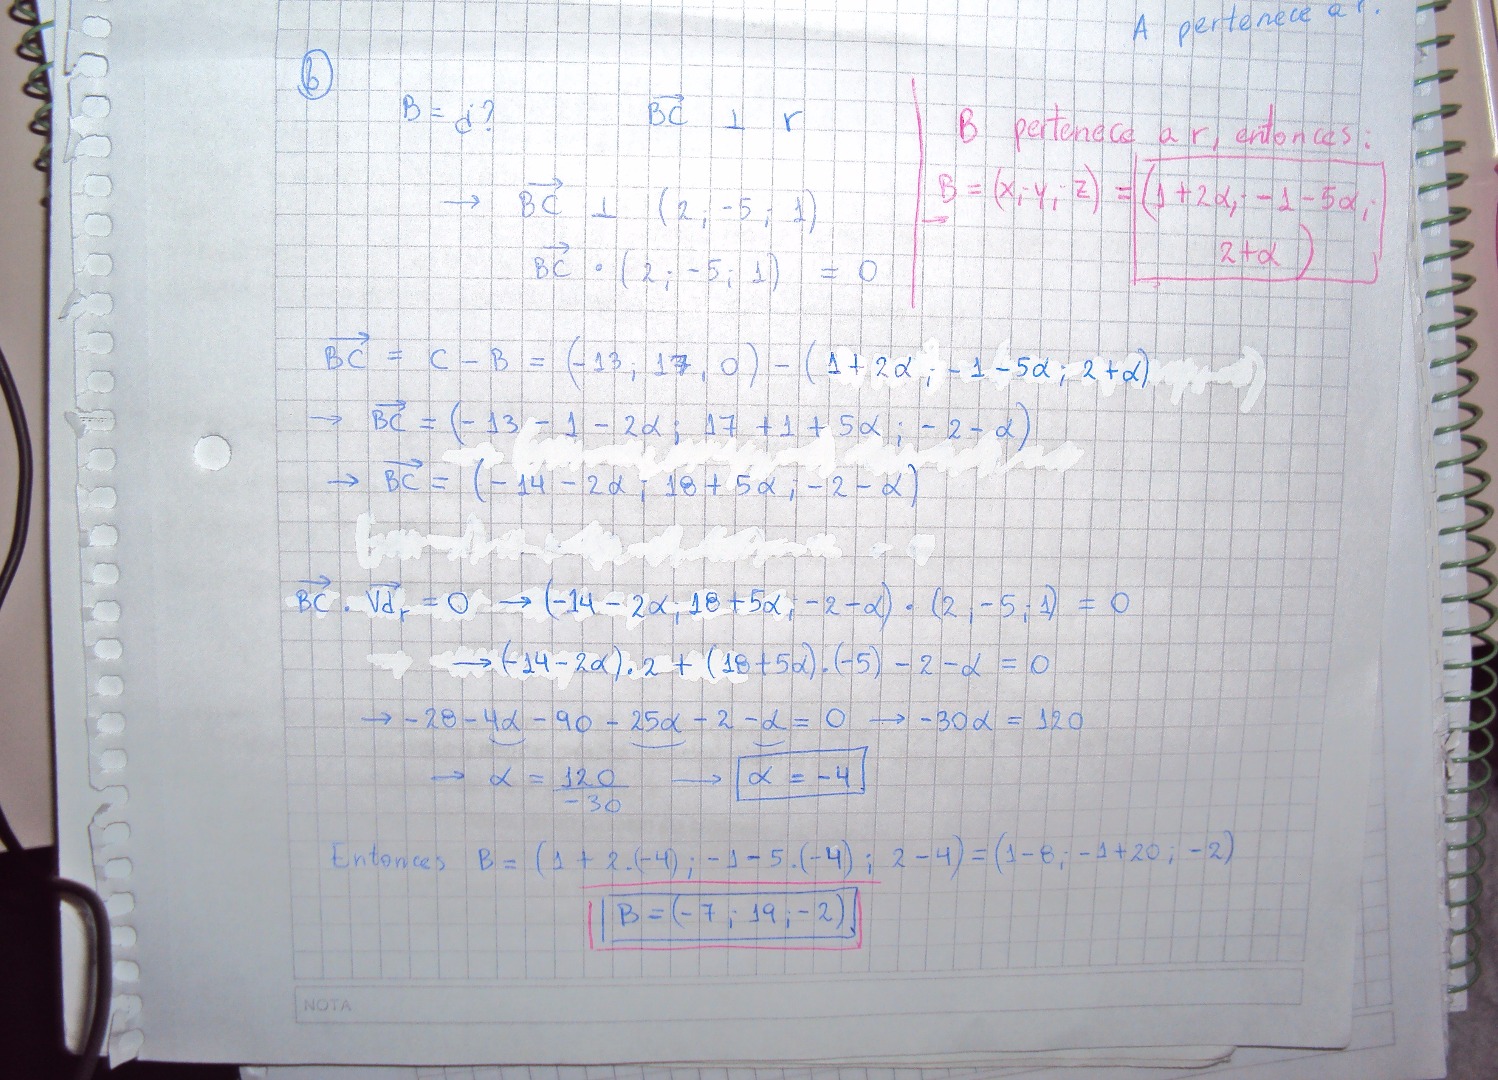 A pertenece a r.
b
B = ¿?   BC ⊥ r
B pertenece a r, entonces:
B = (x; y; z) = (1+2α; -1-5α;
2+α)
→ BC ⊥ (2; -5; 1)
BC · (2; -5; 1) = 0
BC = C - B = (-13; 17; 0) - (1+2α; -1-5α; 2+α)
→ BC = (-13 - 1 - 2α; 17 + 1 + 5α; -2 - α)
→ BC = (-14 - 2α; 18 + 5α; -2 - α)
BC · Vd r = 0 → (-14 - 2α; 18+5α; -2-α) · (2; -5; 1) = 0
→ (-14-2α).2 + (18+5α).(-5) - 2 - α = 0
→ -28 - 4α - 90 - 25α - 2 - α = 0 → -30α = 120
→ α = 120/-30 → α = -4
Entonces B = (1 + 2.(-4); -1 - 5.(-4); 2 - 4) = (1-8; -1+20; -2)
B = (-7; 19; -2)
NOTA